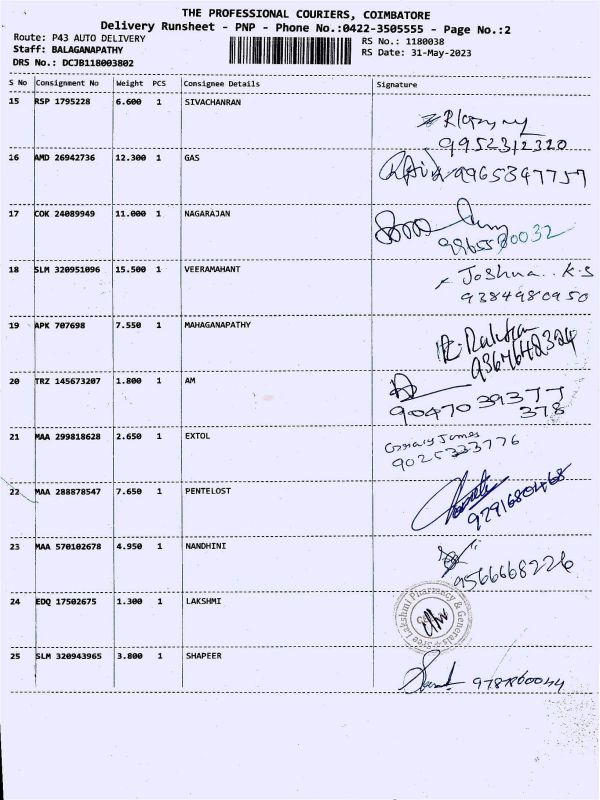 THE PROFESSIONAL COURIERS, COIMBATORE
Delivery Runsheet - PNP - Phone No.:0422-3505555 - Page No.:2
Route: P43 AUTO DELIVERY RS No.: 1180038
Staff: BALAGANAPATHY RS Date: 31-May-2023
DRS No.: DCJB118003802
S No Consignment No Weight PCS Consignee Details Signature
15 RSP 1795228 6.600 1 SIVACHANRAN
9952312320
16 AMD 26942736 12.300 1 GAS
9965347757
17 COK 24089949 11.000 1 NAGARAJAN
18 SLM 320951096 15.500 1 VEERAMAHANT Joshua.. K.S
9384980950
19 APK 707698 7.550 1 MAHAGANAPATHY
20 TRZ 145673207 1.800 1 AM
378
21 MAA 299818628 2.650 1 EXTOL
James
9025333776
22 MAA 288878547 7.650 1 PENTELOST
23 MAA 570102678 4.950 1 NANDHINI
9566668226
24 EDQ 17502675 1.300 1 LAKSHMI Sree Lakshmi Pharmacy & Generals
25 SLM 320943965 3.800 1 SHAPEER